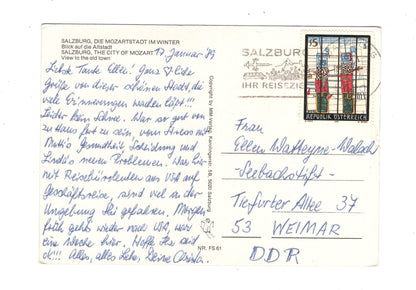 SALZBURG, DIE MOZARTSTADT IM WINTER
Blick auf die Altstadt
SALZBURG, THE CITY OF MOZART
View to the old town
17. Januar '89
Liebste Tante Ellen! Ganz liebe
Grüße von dieser schönen Stadt, die
viele Erinnerungen wachen läßt!!!
Leider kein Schnee. War so gut von
zu Haus fort zu sein, wenn Stress mit
Mutti's Gesundheit, Scheidung und
Linda's neuen Problemen. War hier
mit Reisebüroleuten aus USA auf
Geschäftsreise, sind viel in der
Umgebung Ski gefahren. Morgen
früh geht's wieder nach USA, war
eine Woche hier. Hoffe Ihr seid
ok!!! Alles, alles Liebe, Deine
Copyright by MM Verlag, 5020 Salzburg
NR. FS 61
SALZBURG
IHR REISEZIEL
S 5
REPUBLIK ÖSTERREICH
Frau
Ellen
Seebachstift
Tiefurter Allee 37
53 WEIMAR
DDR